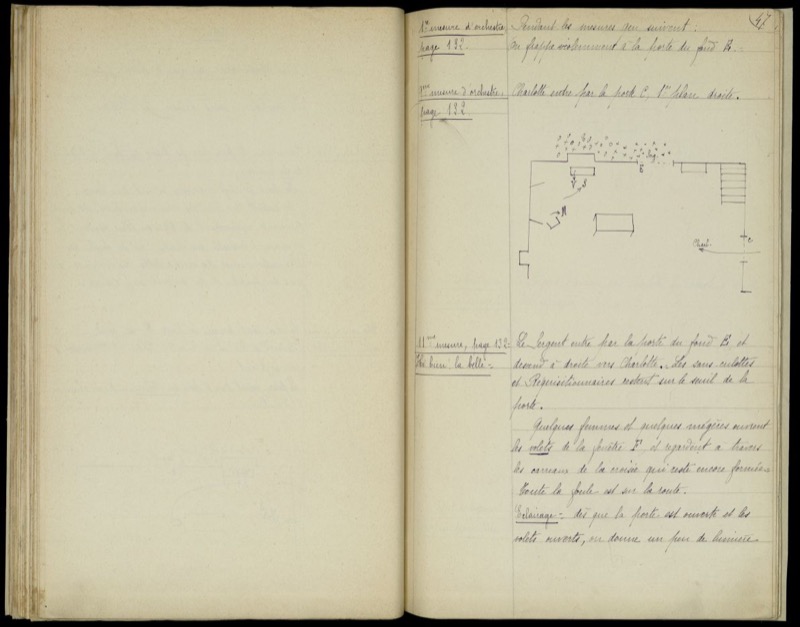 47
1re mesure d'orchestre,
page 132.
Pendant les mesures qui suivent :
on frappe violemment à la porte du fond B.
mesure d'orchestre,
page 132
Charlotte entre par la porte C, 1er plan droite.
Serg
B
S
M
C
Charl.
11me mesure, page 132:
bien la belle -
Le Sergent entre par la porte du fond B, et
descend à droite vers Charlotte. Les sans culottes
et Requisitionnaires restent sur le seuil de la
porte.
Quelques femmes et quelques mégères ouvrent
les volets de la fenêtre F et regardent à travers
les carreaux de la croisée qui reste encore fermée.
Toute la foule est sur la route.
Eclairage - dès que la porte est ouverte et les
volets ouverts, on donne un peu de lumière